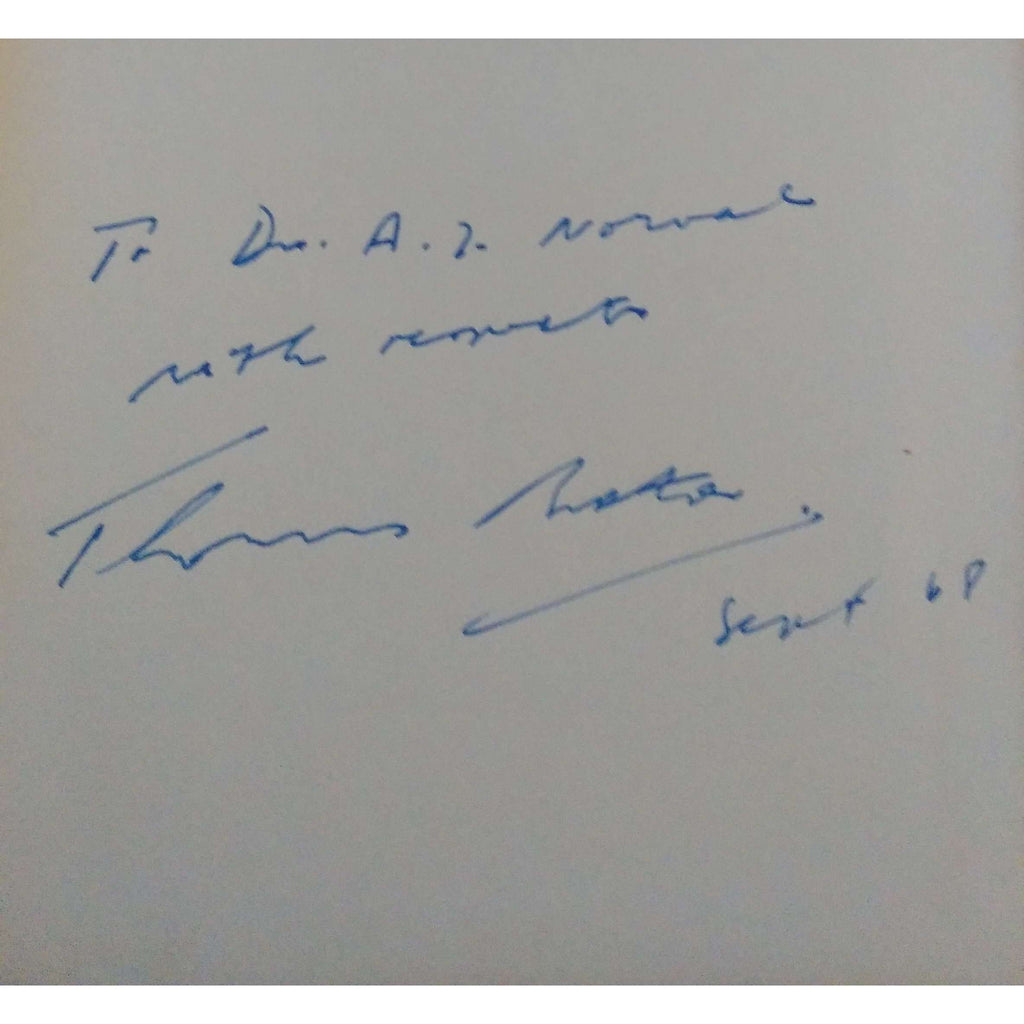 To Dr. A. J. Norval
with respects
Thomas
Sept 68